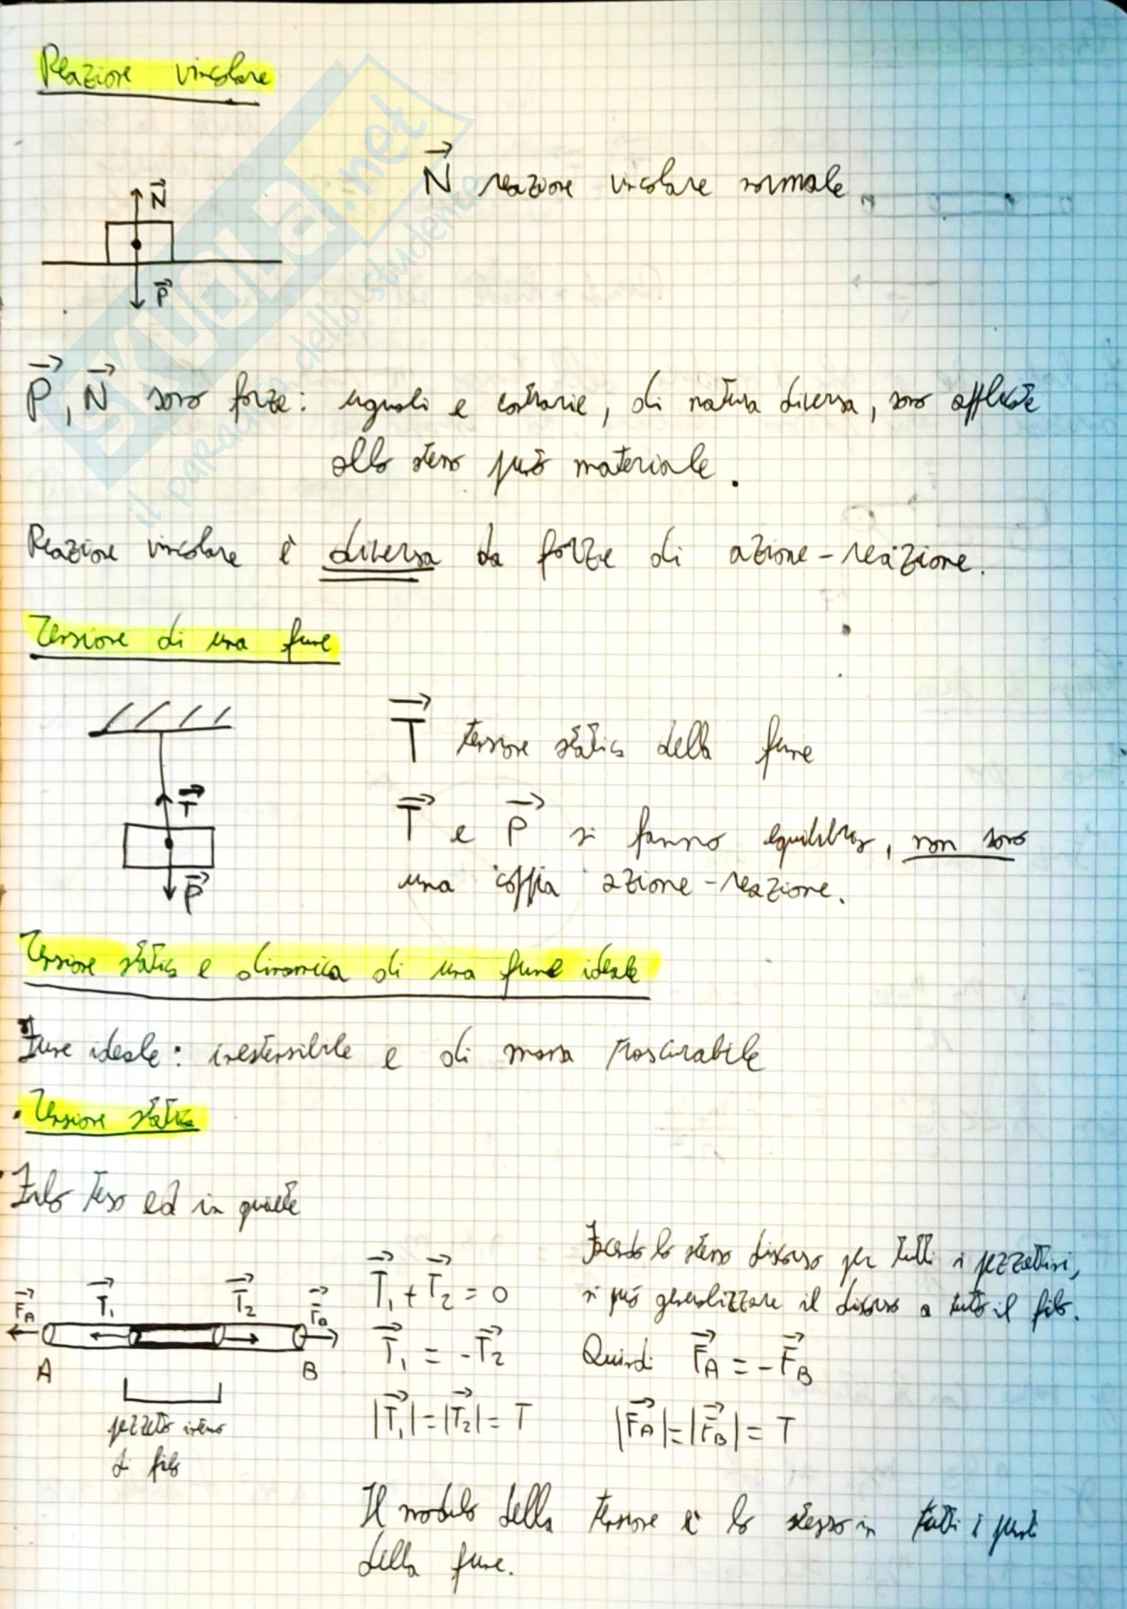 Reazione vincolare
N⃗ reazione vincolare normale
N⃗
P⃗
P⃗, N⃗ sono forze: uguali e contrarie, di natura diversa, sono applicate
allo stesso punto materiale.
Reazione vincolare è diversa da forze di azione-reazione.
Tensione di una fune
T⃗ tensione statica della fune
T⃗
P⃗
T⃗ e P⃗ si fanno equilibrio, non sono
una coppia azione-reazione.
Tensione statica e dinamica di una fune ideale
Fune ideale: inestensibile e di massa trascurabile
• Tensione statica
Filo teso ed in quiete
F⃗A T⃗1 T⃗2 F⃗B
A B
pezzetto interno
di filo
T⃗1 + T⃗2 = 0
T⃗1 = -T⃗2
|T⃗1| = |T⃗2| = T
Facendo lo stesso discorso per tutti i pezzettini,
si può generalizzare il discorso a tutto il filo.
Quindi F⃗A = -F⃗B
|F⃗A| = |F⃗B| = T
Il modulo della tensione è lo stesso in tutti i punti
della fune.
SKUOLA.net
il paradiso dello studente